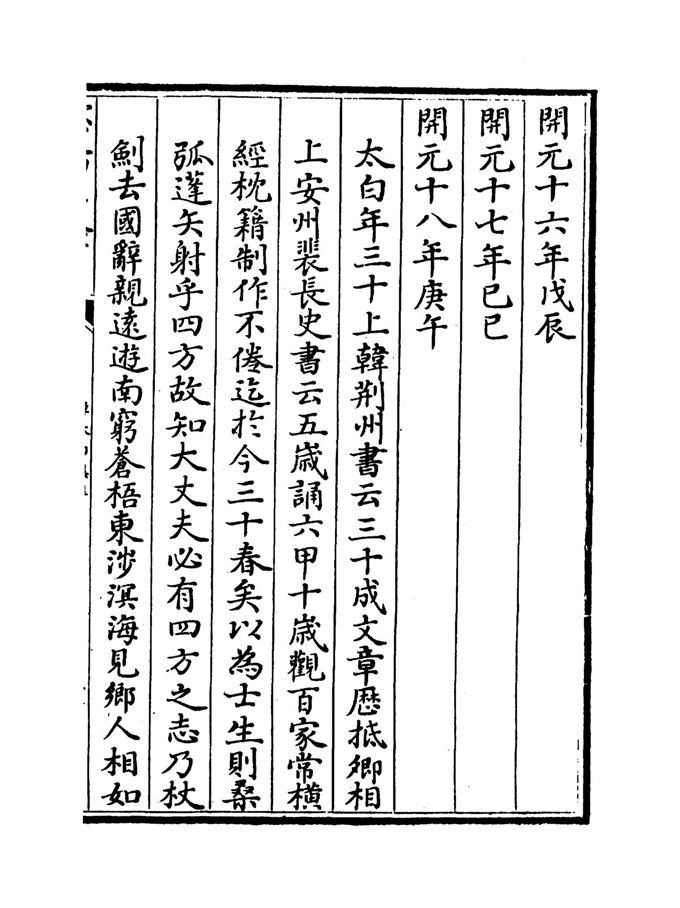 開元十六年戊辰
開元十七年己巳
開元十八年庚午
太白年三十上韓荆州書云三十成文章歴抵卿相
上安州裴長史書云五歳誦六甲十歳觀百家常横
經枕籍制作不倦迄於今三十春矣以為士生則桑
弧蓬矢射乎四方故知大丈夫必有四方之志乃杖
劎去國辭親逺遊南窮蒼梧東涉溟海見鄉人相如